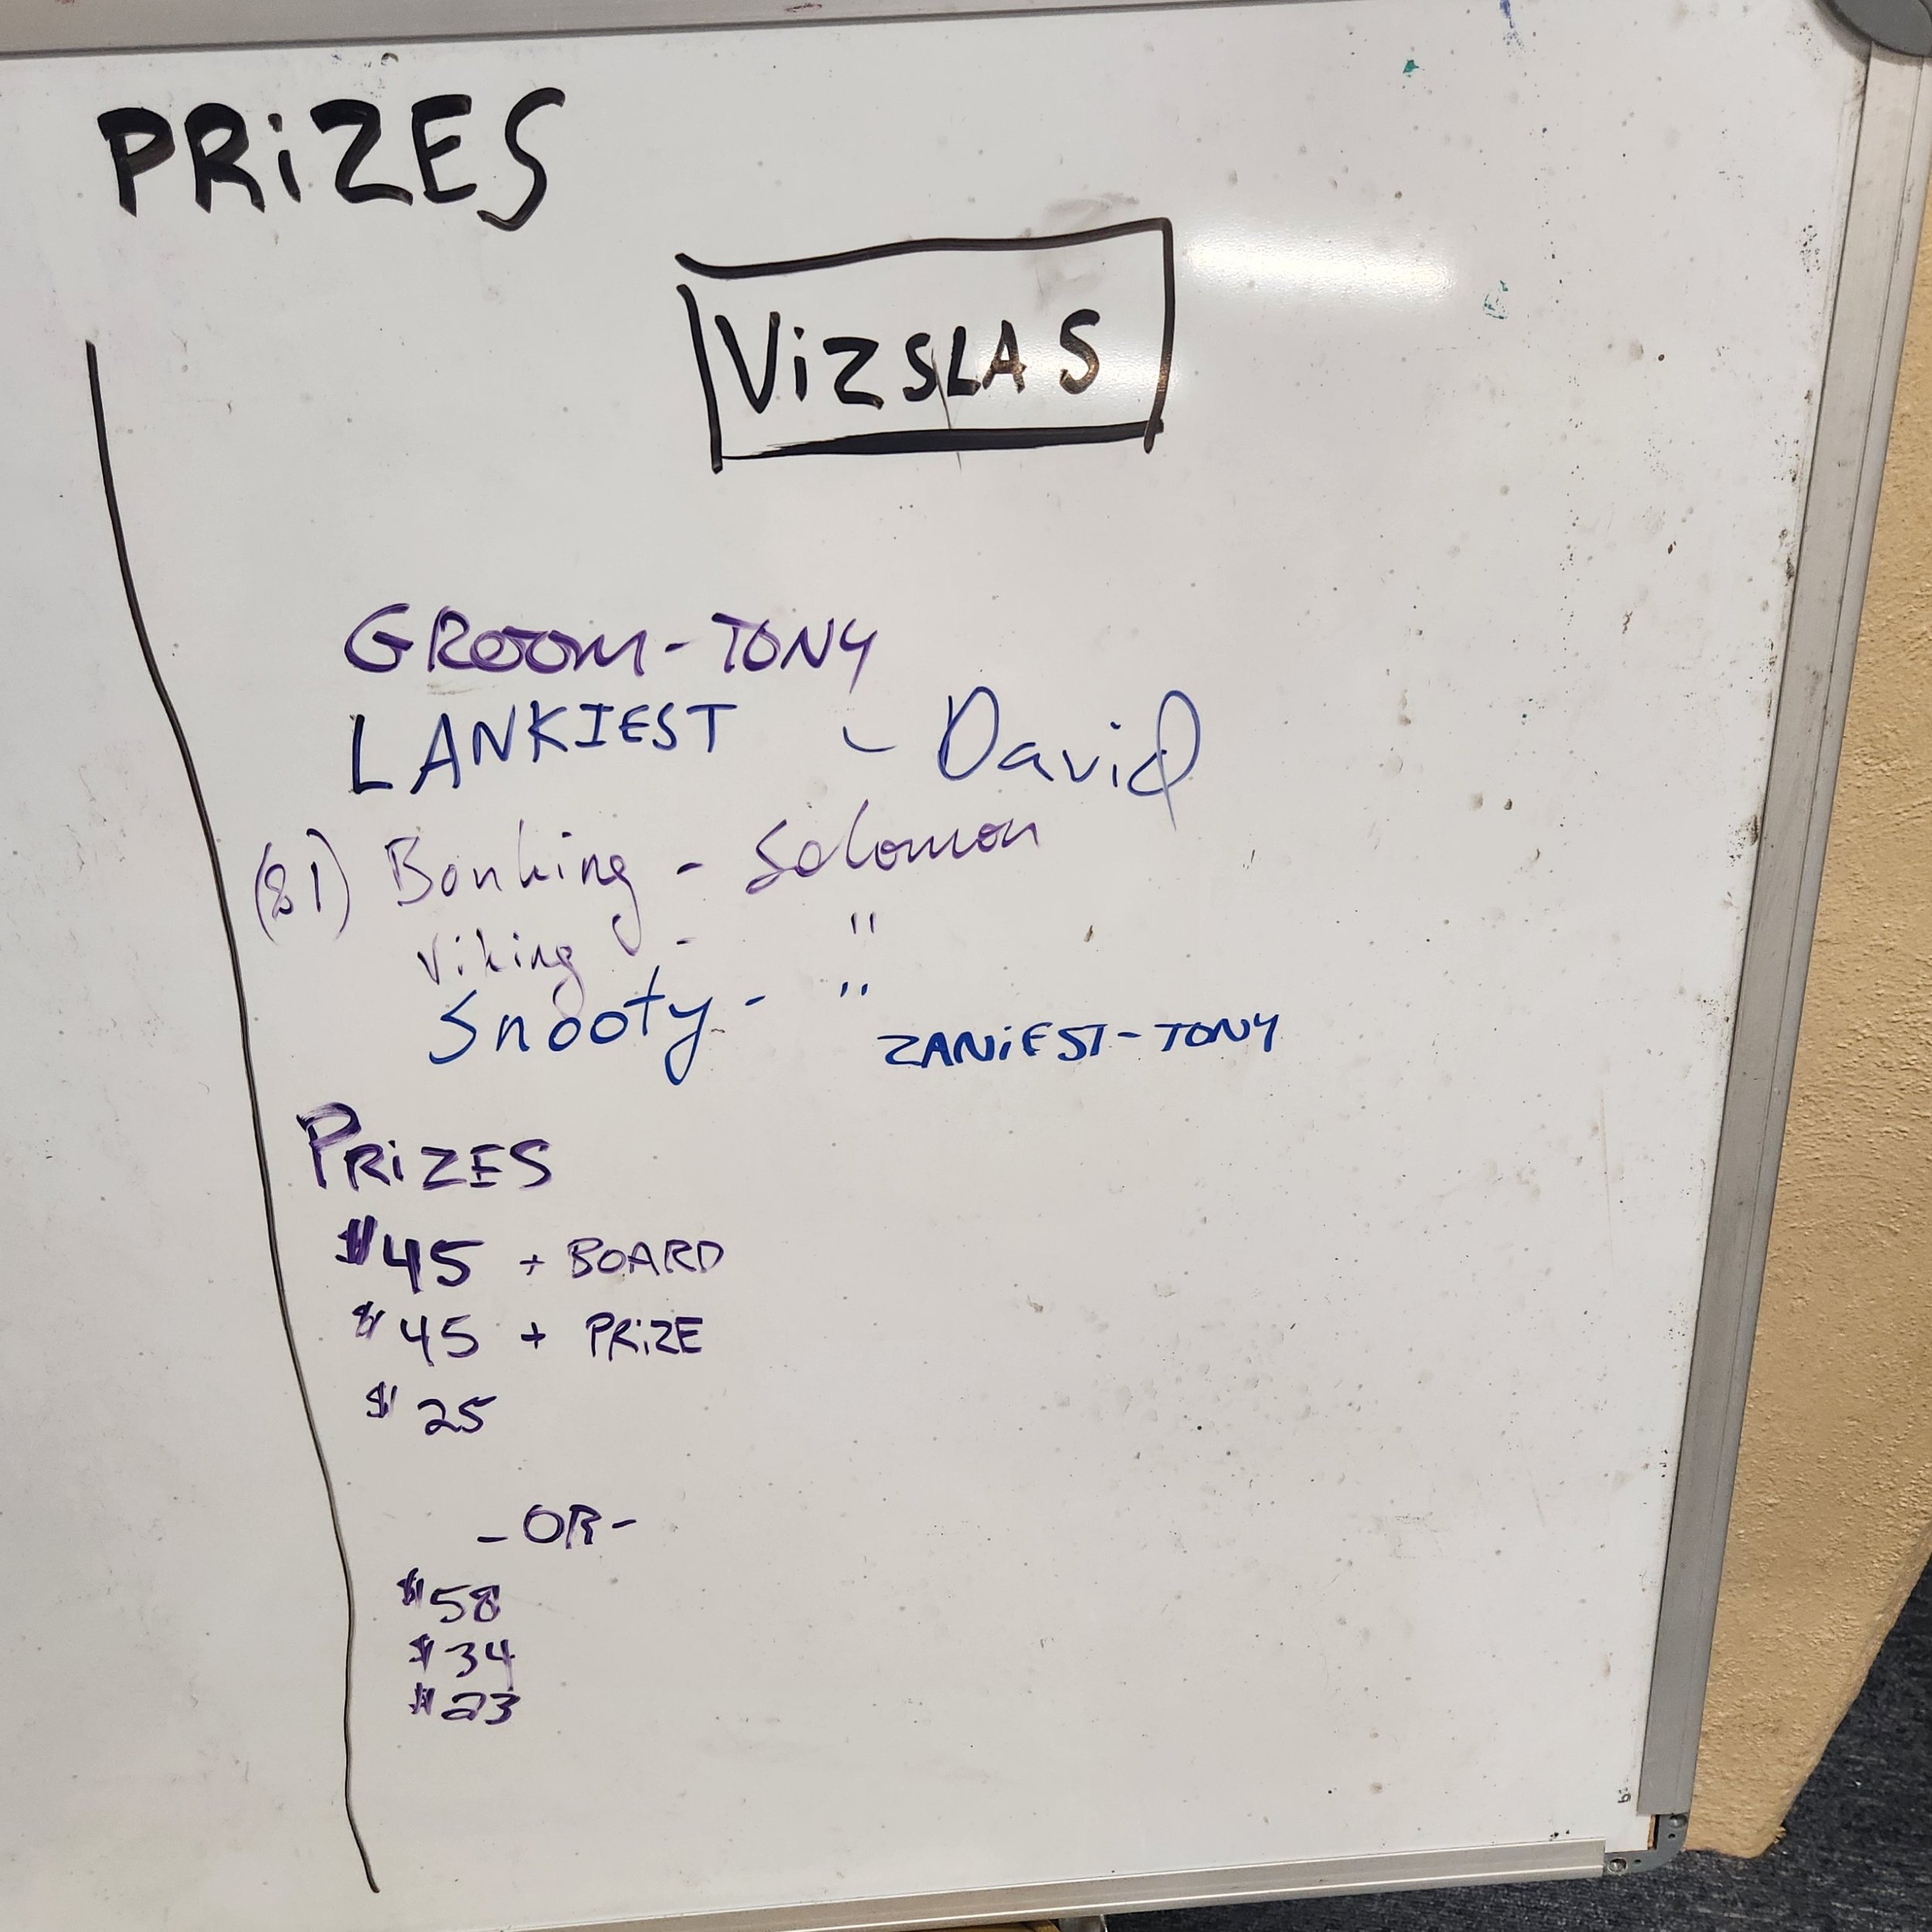 PRiZES
ViZSLAS
GROOM-TONY
LANKIEST - David
(81) Bonking - Solomon
Viking - "
Snooty - "
ZANiEST-TONY
PRiZES
$45 + BOARD
$45 + PRiZE
$25
-OR-
$58
$34
$23